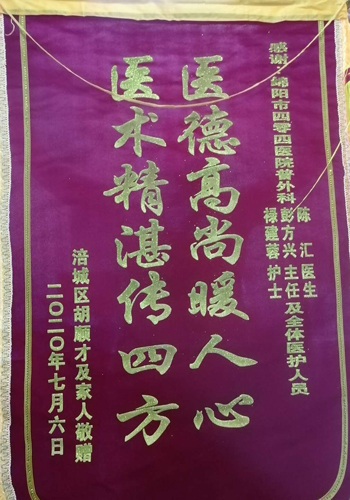 感谢：绵阳市四零四医院普外科
陈汇医生
彭方兴主任及全体医护人员
禄建蓉护士
医德高尚暖人心
医术精湛传四方
涪城区胡顺才及家人敬赠
二〇二〇年七月六日